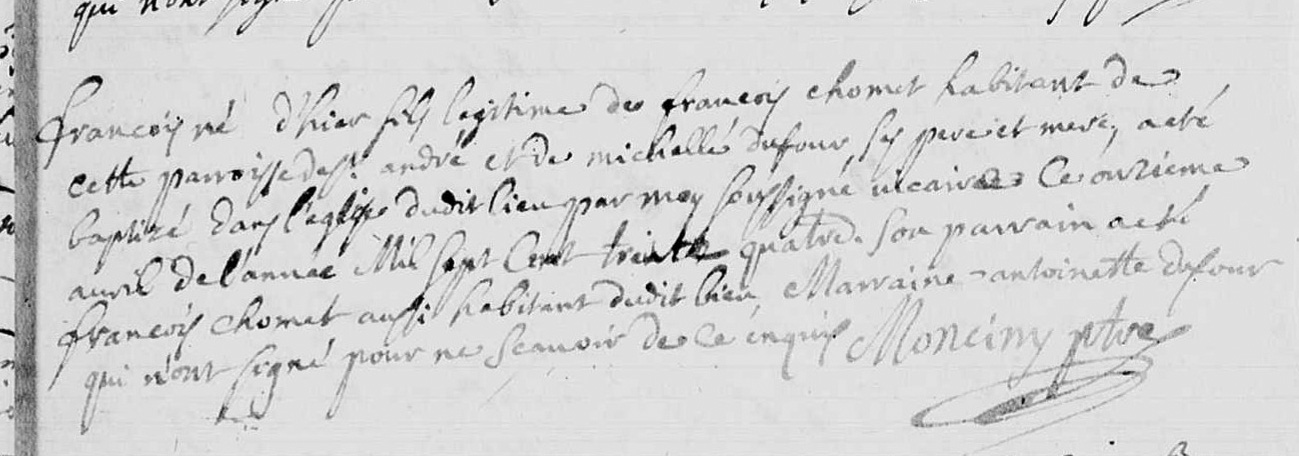 qui n'ont signé
françois né d'hier fils legitime de françois chomet habitant de
cette parroisse de st. andré et de michelle dufour, ses pere et mere, a eté
baptizé dans l'eglise dudit lieu par moy soussigné vicaire ce onzieme
avril de l'année Mil sept Cent trente quatre. son parrain a eté
françois chomet aussi habitant dudit lieu, Marraine antoinette dufour
qui n'ont signé pour ne scavoir de ce enquis Monciny ptre